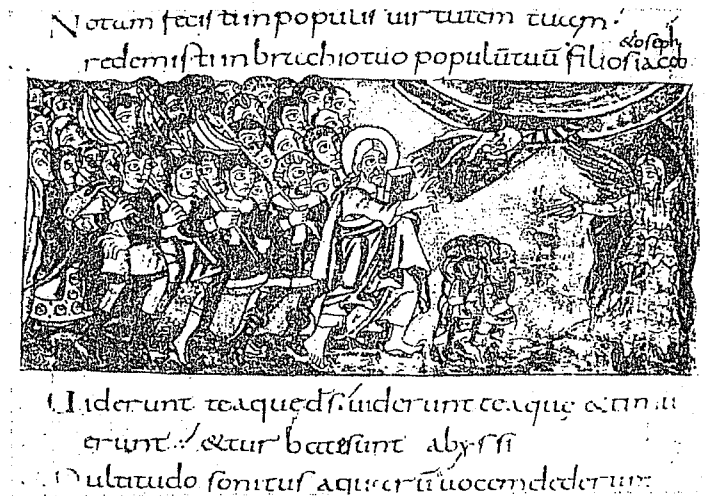 Notum fecisti in populis uirtutem tuam.
redemisti in brachio tuo populū tuū filios iacob
& ioseph
Uiderunt te aquę dš. uiderunt te aquę & timu
erunt. & turbatę sunt abyssi
Multitudo sonitus aquarū uocem dederunt